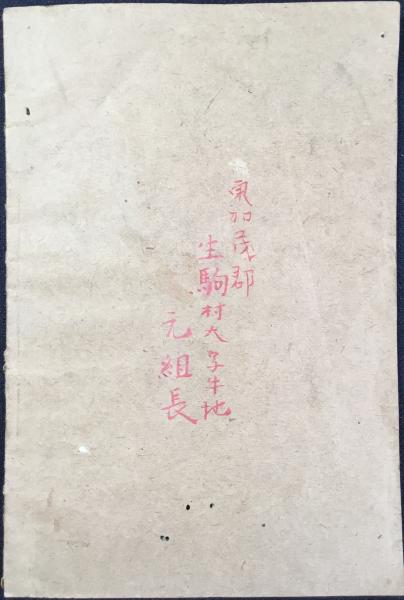 東加茂郡
生駒村大字牛地
元組長